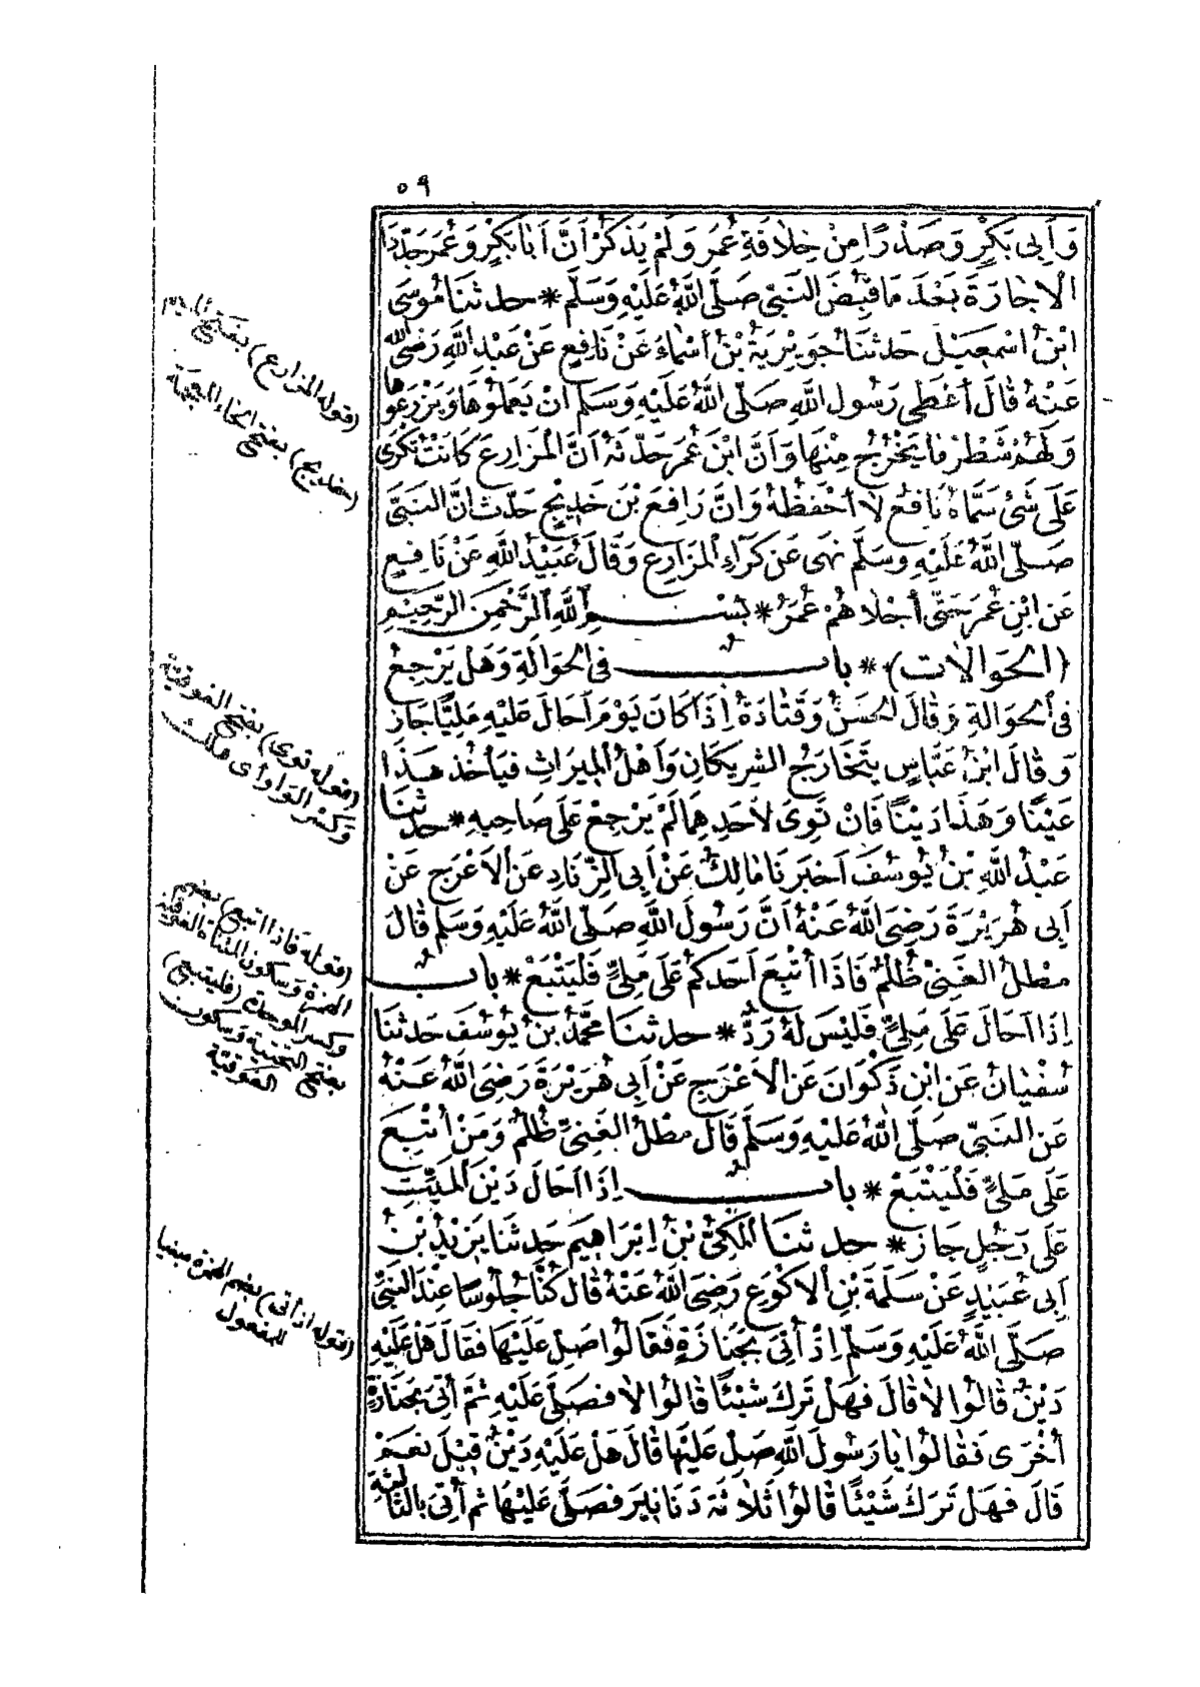 ٥٩
وَأَبِى بَكْرٍ وَصَدْرًا مِنْ خِلَافَةِ عُمَرَ وَلَمْ يَذْكُرْ أَنَّ أَبَا بَكْرٍ وَعُمَرَ جَدَّدَا
الْاِجَارَةَ بَعْدَ مَا قُبِضَ النَّبِىُّ صَلَّى اللَّهُ عَلَيْهِ وَسَلَّمَ * حدثنا مُوسَى
ابْنُ اسْمٰعِيْلَ حَدثنَا جُوَيْرِيَةُ بْنُ أَسْمَاءَ عَنْ نَافِعٍ عَنْ عَبْدِ اللَّهِ رَضِىَ اللَّهُ
عَنْهُ قَالَ أَعْطٰى رَسُولُ اللَّهِ صَلَّى اللَّهُ عَلَيْهِ وَسَلَّمَ اَنْ يَعْمَلُوْهَا وَيَزْرَعُوهَا
وَلَهُمْ شَطْرُ مَا يَخْرُجُ مِنْهَا وَأَنَّ ابْنَ عُمَرَ حَدَّثَهُ اَنَّ الْمَزَارِعَ كَانَتْ تُكْرَى
عَلَى شَىْءٍ سَمَّاهُ نَافِعٌ لَا أَحْفَظُهُ وَاَنَّ رَافِعَ بْنَ خَدِيْجٍ حَدَّثَ اَنَّ النَّبِىَّ
صَلَّى اللَّهُ عَلَيْهِ وَسَلَّمَ نَهَى عَنْ كَرَاءِ الْمَزَارِعِ وَقَالَ عُبَيْدُ اللَّهِ عَنْ نَافِعٍ
عَنِ ابْنِ عُمَرَ حَتَّى أَجْلَاهُمْ عُمَرُ * بِسْمِ اللَّهِ الرَّحْمٰنِ الرَّحِيْمِ
(الحَوَالَات) * بَابٌ فِى الْحَوَالَةِ وَهَلْ يَرْجِعُ
فِى الْحَوَالَةِ وَقَالَ الْحَسَنُ وَقَتَادَةُ اِذَا كَانَ يَوْمَ اَحَالَ عَلَيْهِ مَلِيًّا جَازَ
وَقَالَ ابْنُ عَبَّاسٍ يَتَخَارَجُ الشَّرِيْكَانِ وَاَهْلُ الْمِيْرَاثِ فَيَأْخُذُ هَذَا
عَيْنًا وَهَذَا دَيْنًا فَاِنْ تَوِىَ لِاَحَدِهِمَا لَمْ يَرْجِعْ عَلَى صَاحِبِهِ * حدثنا
عَبْدُ اللَّهِ بْنُ يُوْسُفَ اَخْبَرَنَا مَالِكٌ عَنْ أَبِى الزِّنَادِ عَنِ الْاَعْرَجِ عَنْ
أَبِى هُرَيْرَةَ رَضِىَ اللَّهُ عَنْهُ اَنَّ رَسُولَ اللَّهِ صَلَّى اللَّهُ عَلَيْهِ وَسَلَّمَ قَالَ
مَطْلُ الْغَنِىِّ ظُلْمٌ فَاِذَا أُتْبِعَ اَحَدُكُمْ عَلَى مَلِىٍّ فَلْيَتْبَعْ * بَابٌ
اِذَا اَحَالَ عَلَى مَلِىٍّ فَلَيْسَ لَهُ رَدٌّ * حدثنا مُحَمَّدُ بْنُ يُوْسُفَ حَدثنَا
سُفْيَانُ عَنِ ابْنِ ذَكْوَانَ عَنِ الْاَعْرَجِ عَنْ أَبِى هُرَيْرَةَ رَضِىَ اللَّهُ عَنْهُ
عَنِ النَّبِىِّ صَلَّى اللَّهُ عَلَيْهِ وَسَلَّمَ قَالَ مَطْلُ الْغَنِىِّ ظُلْمٌ وَمَنْ أُتْبِعَ
عَلَى مَلِىٍّ فَلْيَتْبَعْ * بَابٌ اِذَا اَحَالَ دَيْنَ الْمَيِّتِ
عَلَى رَجُلٍ جَازَ * حدثنا الْمَكِّىُّ بْنُ اِبْرَاهِيمَ حَدثنَا يَزِيْدُ بْنُ
أَبِى عُبَيْدٍ عَنْ سَلَمَةَ بْنِ الْاَكْوَعِ رَضِىَ اللَّهُ عَنْهُ قَالَ كُنَّا جُلُوْسًا عِنْدَ النَّبِىِّ
صَلَّى اللَّهُ عَلَيْهِ وَسَلَّمَ اِذْ أُتِىَ بِجَنَازَةٍ فَقَالُوا صَلِّ عَلَيْهَا فَقَالَ هَلْ عَلَيْهِ
دَيْنٌ قَالُوا لَا قَالَ فَهَلْ تَرَكَ شَيْئًا قَالُوا لَا فَصَلَّى عَلَيْهِ ثُمَّ أُتِىَ بِجَنَازَةٍ
أُخْرَى فَقَالُوا يَا رَسُولَ اللَّهِ صَلِّ عَلَيْهَا قَالَ هَلْ عَلَيْهِ دَيْنٌ قِيْلَ نَعَمْ
قَالَ فَهَلْ تَرَكَ شَيْئًا قَالُوا ثَلَاثَةَ دَنَانِيرَ فَصَلَّى عَلَيْهَا ثُمَّ أُتِىَ بِالثَّالِثَةِ
(قوله المزارع) بفتح الميم
(خديج) بفتح الخاء المعجمة
(قوله توى) بفتح الفوقيّة
وكسر الواو أى هلك
(قوله فاذا اتبع) بضم
الهمزة وسكون المثناة الفوقية
وكسر الموحدة (فليتبع)
بفتح التحتية وسكون
الفوقيّة
(قوله اذ أتى) بضم الهمزة مبنيا
للمفعول